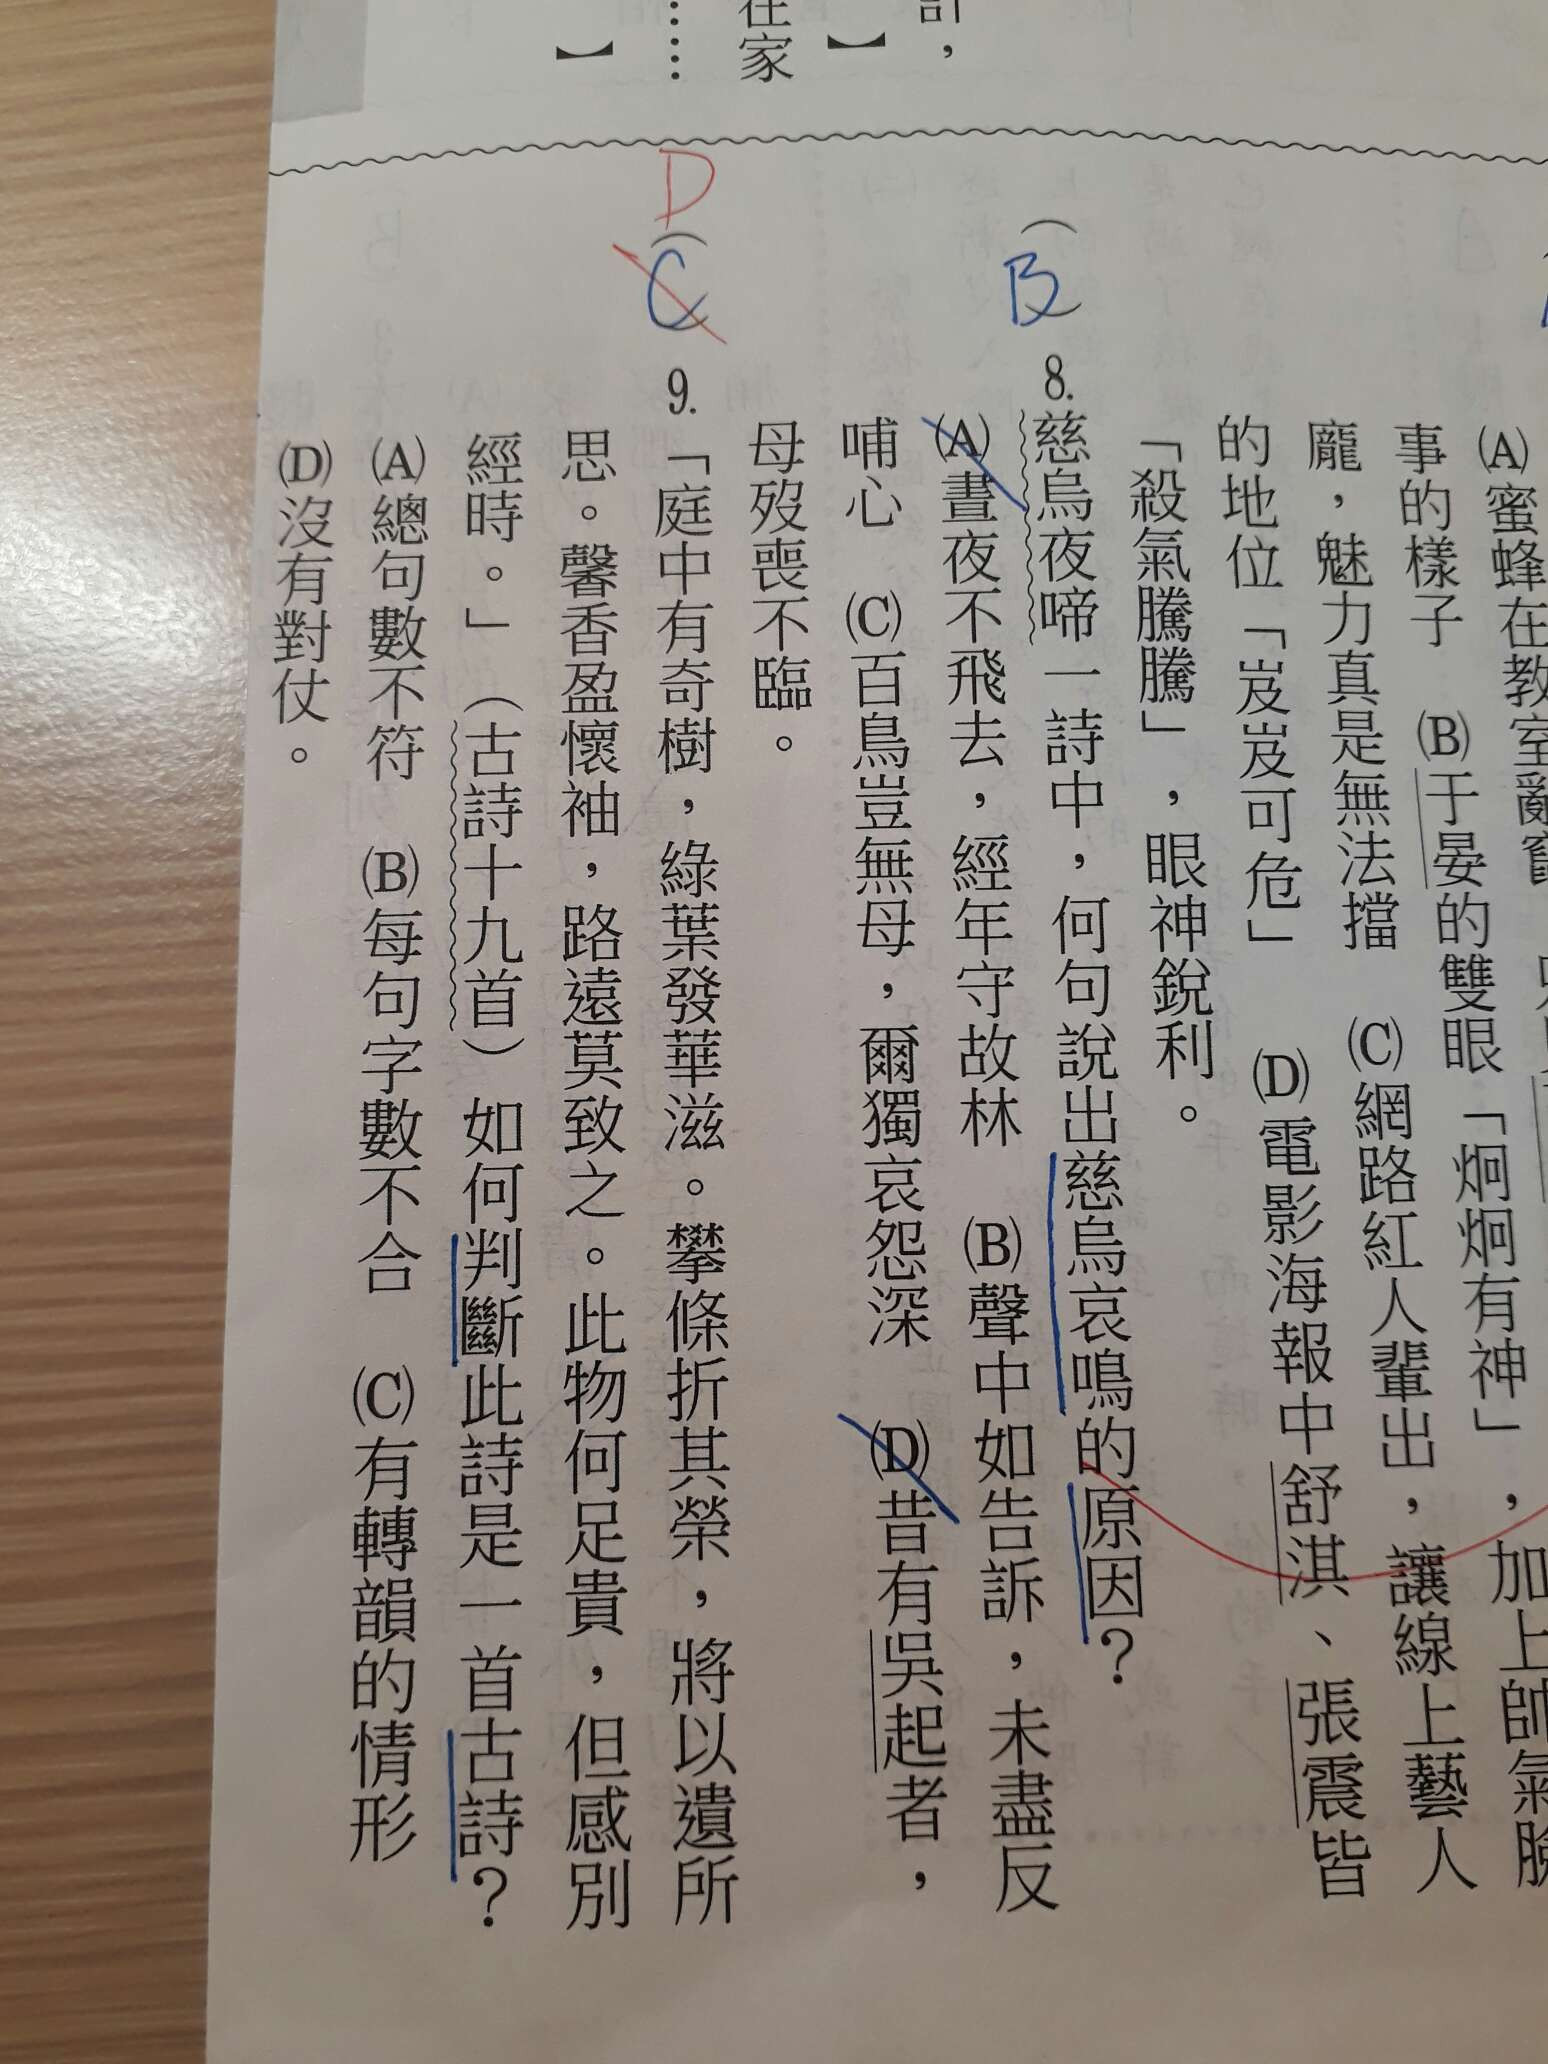 計，
】
在家
……
】
(A)蜜蜂在教室亂竄
事的樣子　(B)于晏的雙眼「炯炯有神」，加上帥氣臉
龐，魅力真是無法擋　(C)網路紅人輩出，讓線上藝人
的地位「岌岌可危」　(D)電影海報中舒淇、張震皆
「殺氣騰騰」，眼神銳利。
（B）8.慈烏夜啼一詩中，何句說出慈烏哀鳴的原因？
(A)晝夜不飛去，經年守故林　(B)聲中如告訴，未盡反
哺心　(C)百鳥豈無母，爾獨哀怨深　(D)昔有吳起者，
母歿喪不臨。
D
（C）9.「庭中有奇樹，綠葉發華滋。攀條折其榮，將以遺所
思。馨香盈懷袖，路遠莫致之。此物何足貴，但感別
經時。」（古詩十九首）如何判斷此詩是一首古詩？
(A)總句數不符　(B)每句字數不合　(C)有轉韻的情形
(D)沒有對仗。